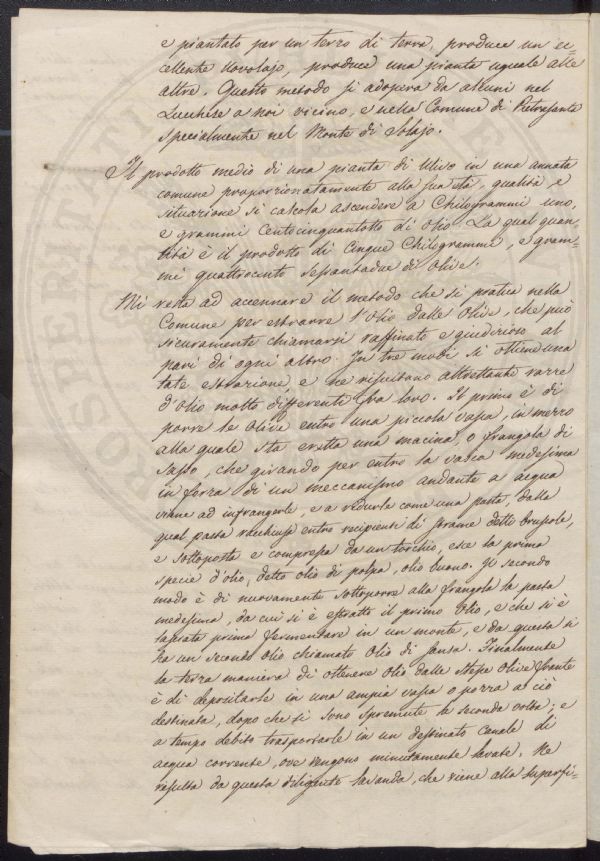 e piantato per un terzo di terra, produce un ec-
cellente Uovolajo, produce una pianta uguale alle
altre. Questo metodo si adopera da alcuni nel
Lucchese a noi vicino, e nella Comune di Pietrasanta
specialmente nel Monte di Solajo.
Il prodotto medio di una pianta di Ulivo in una annata
comune proporzionatamente alla sua età, qualità e
situazione si calcola ascendere a Chilogrammi uno,
e grammi centocinquantotto di olio. La qual quan-
tità è il prodotto di cinque Chilogrammi, e gram-
mi quattrocento sepantadue di olive.
Mi resta ad accennare il metodo che si pratica nella
Comune per estrarre l'olio dalle Olive, che può
sicuramente chiamarsi raffinato e giudizioso al
pari di ogni altro. In tre modi si ottiene una
tale estrazione, e ne risultano altrettante razze
d'olio molto differenti fra loro. Il primo è di
porre le Olive entro una piccola vasca, in mezzo
alla quale sta eretta una macina, o frangola di
sasso, che girando per entro la vasca medesima
in forza di un meccanismo andante a acqua
viene ad infrangerle, e a ridurle come una pasta, dalla
qual pasta racchiusa entro recipiente di strame dette bruscole,
e sottoposta e compressa da un torchio, esce la prima
specie d'olio, detto olio di polpa, olio buono. Il secondo
modo è di nuovamente sottoporre alla frangola la pasta
medesima, da cui si è estratto il primo Olio, e che si è
lasciata prima fermentare in un monte, e da questa si
ha un secondo olio chiamato Olio di sansa. Finalmente
la terza maniera di ottenere olio dalle stesse olive frante
è di depositarle in una ampia vasca o pozza a ciò
destinata, dopo che si sono spremute la seconda volta; e
a tempo debito trasportarle in un destinato canale di
acqua corrente, ove vengono minutamente lavate. Ne
risulta da questa diligente lavanda, che viene alla superfi-